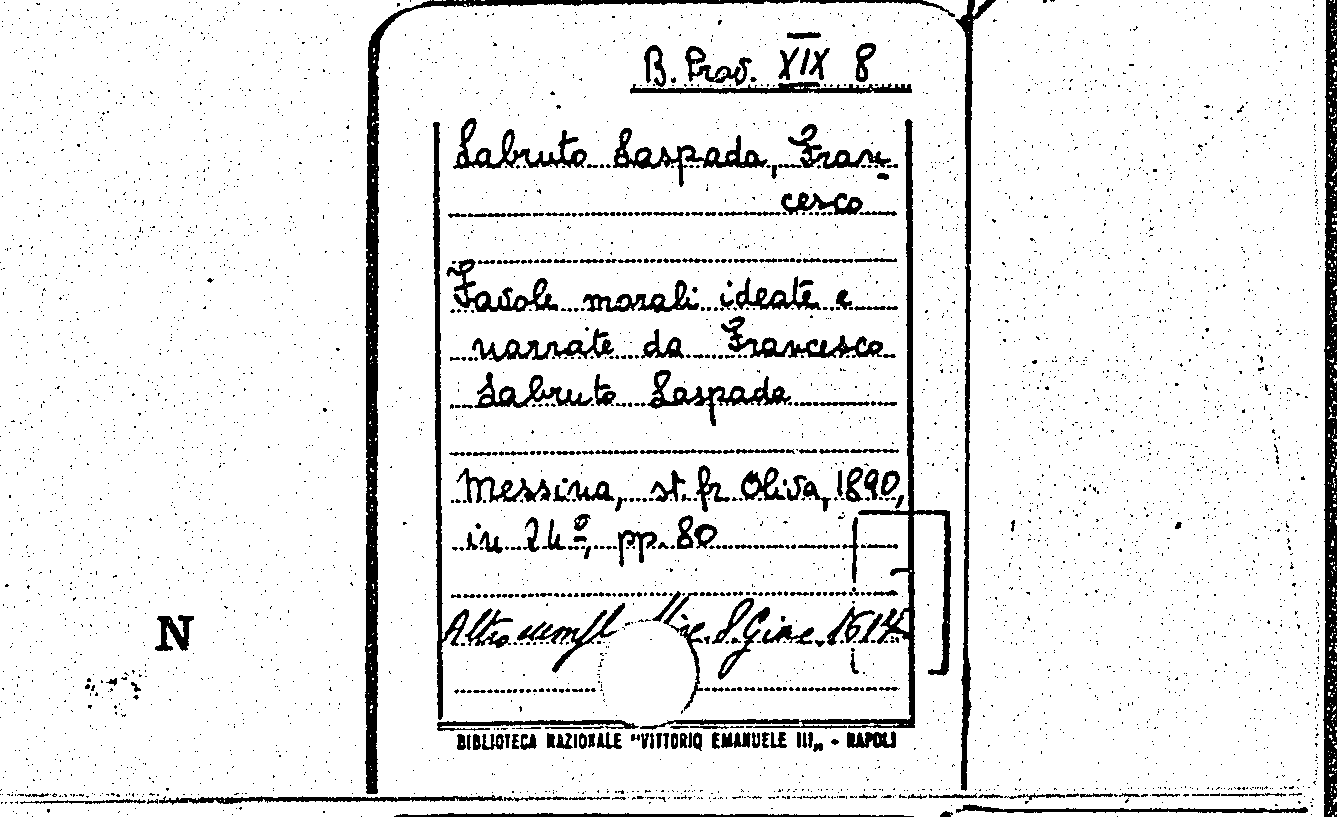 B. Prov. XIX 8
Labruto Laspada, Fran-
cesco
Favole morali ideate e
narrate da Francesco
Labruto Laspada
Messina, st. fr Oliva, 1890,
in 24º, pp. 80
Altro
N
BIBLIOTECA NAZIONALE "VITTORIO EMANUELE III„ - NAPOLI